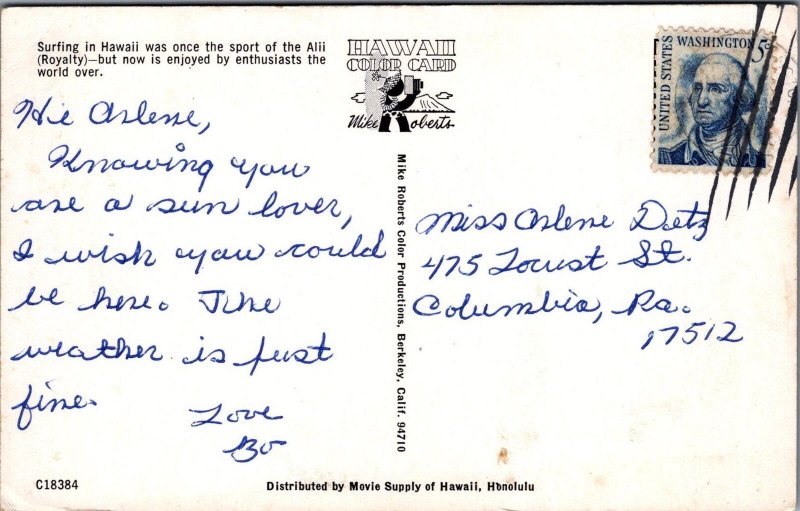 Surfing in Hawaii was once the sport of the Alii
(Royalty)—but now is enjoyed by enthusiasts the
world over.
HAWAII
COLOR CARD
Mike Roberts
UNITED STATES
WASHINGTON 5c
Hie Arlene,
Knowing you
are a sun lover,
I wish you could
be here. The
weather is just
fine.
Love
Bo
Mike Roberts Color Productions, Berkeley, Calif. 94710
Miss Arlene Dietz
475 Locust St.
Columbia, Pa.
17512
C18384
Distributed by Movie Supply of Hawaii, Honolulu